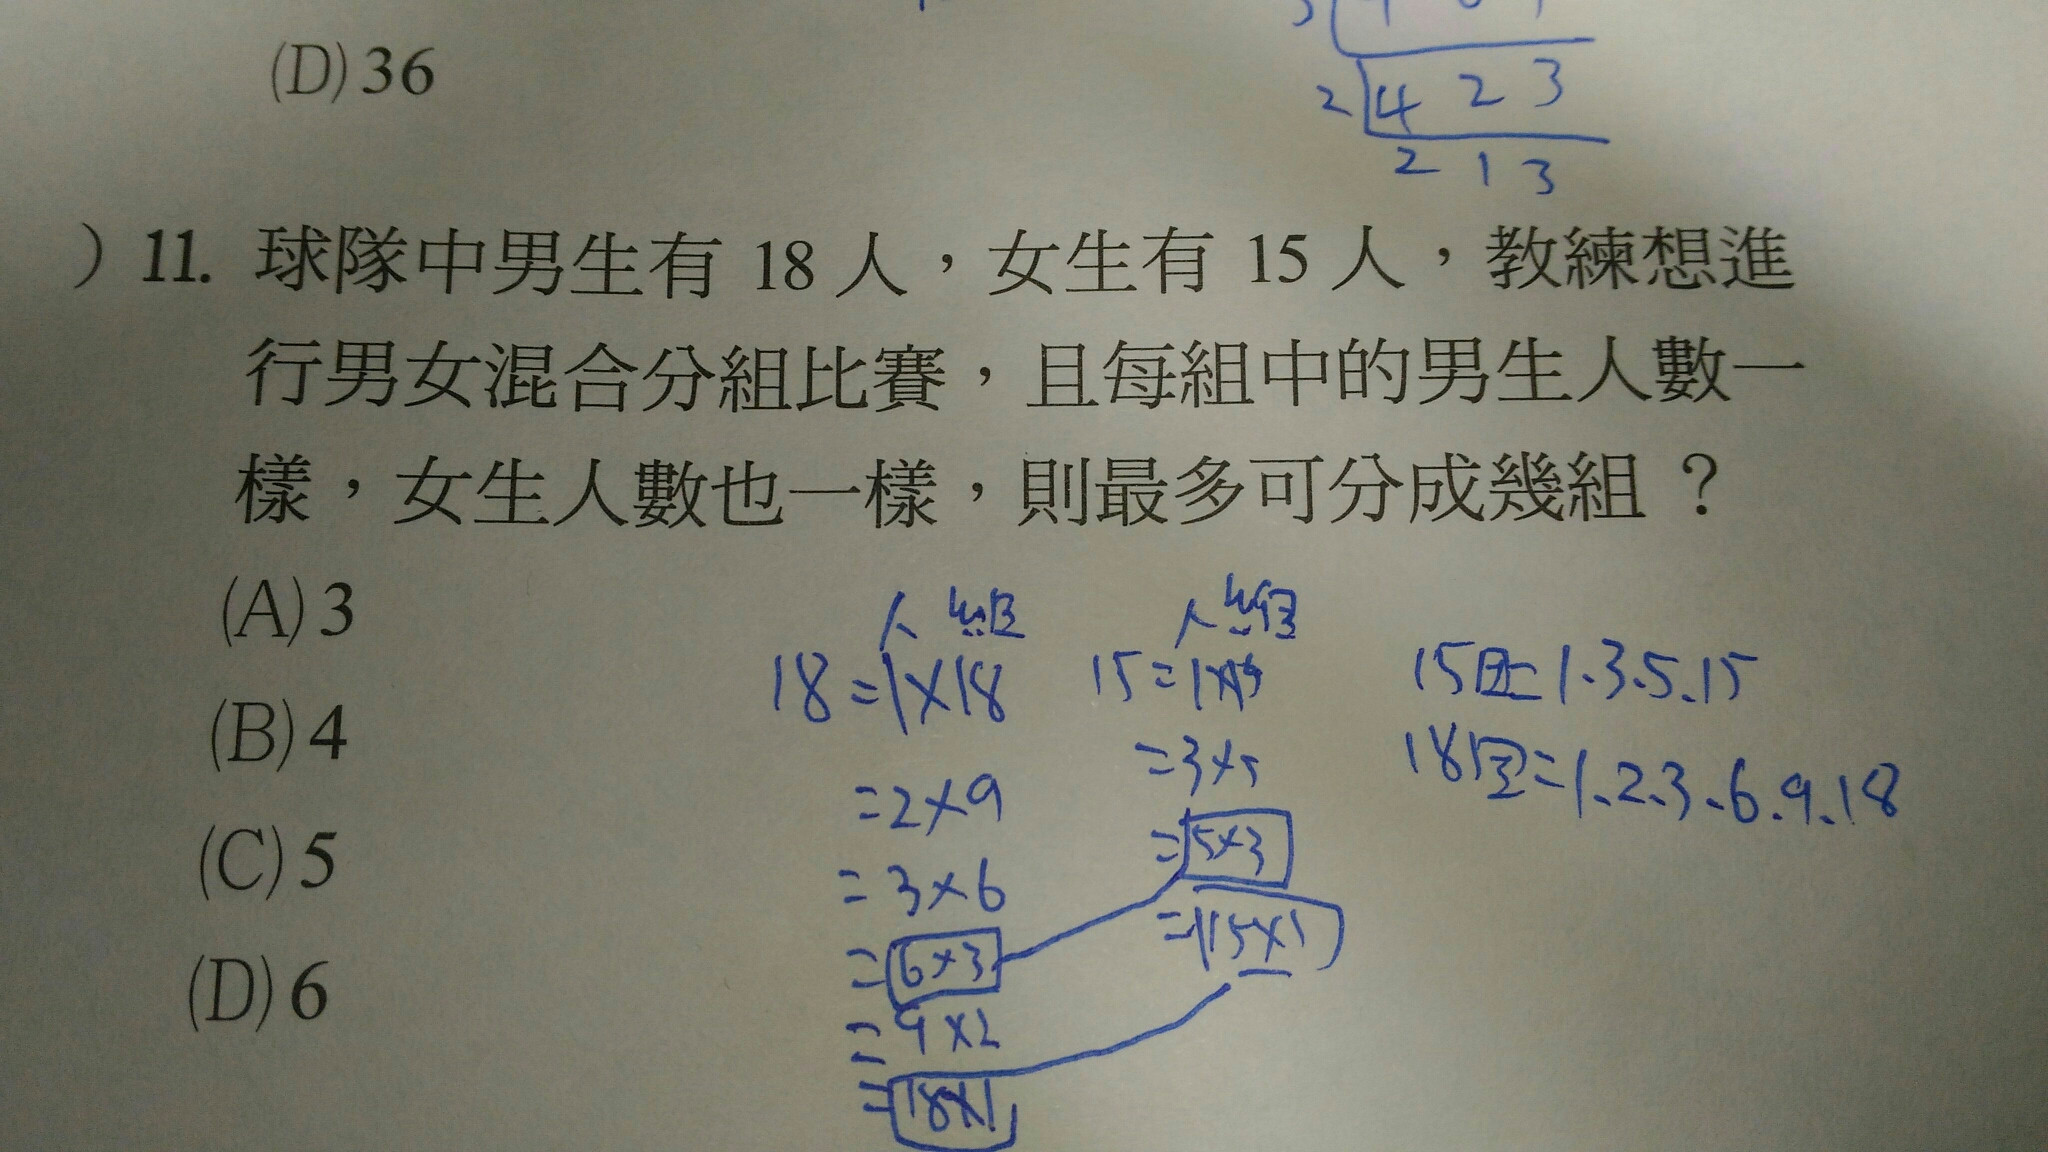 (D)36
2 4 2 3
2 1 3
) 11. 球隊中男生有 18 人,女生有 15 人,教練想進
行男女混合分組比賽,且每組中的男生人數一
樣,女生人數也一樣,則最多可分成幾組?
(A)3
(B)4
(C)5
(D)6
人 組
18=1×18
=2×9
=3×6
=6×3
=9×2
=18×1
人 組
15=1×15
=3×5
=5×3
=15×1
15因=1.3.5.15
18因=1.2.3.6.9.18